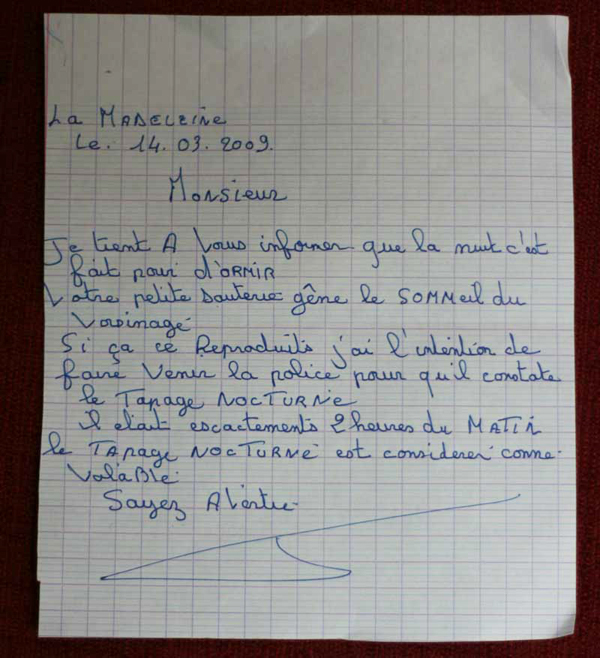 La MADELEINE
Le. 14. 03. 2009.
Monsieur
Je tient A Vous informer que la nuit c'est
fait pour d'ORMIR
Votre petite sauterie gêne le SOMMeil du
Voisinage
Si ça ce Reproduits j'ai l'intention de
faire Venir la police pour qu'il constate
le Tapage NOCTURNE
il était escactements 2 heures du MATIN
le TAPAGE NOCTURNE est considerer comme
VALABLE
Soyez Avertie